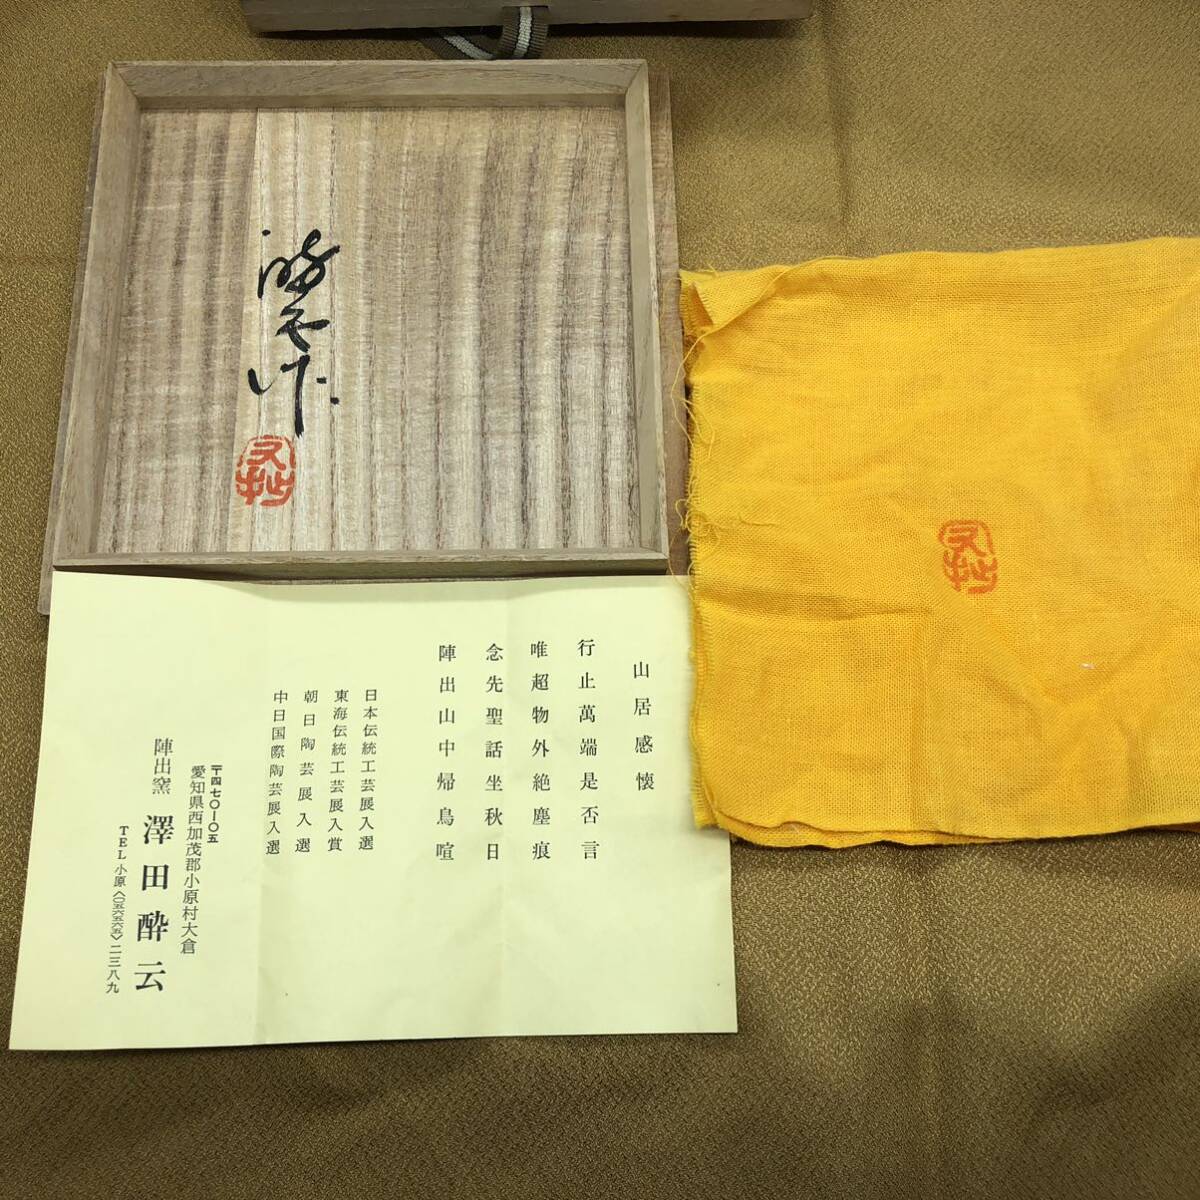 酔云作
山居感懐
行止萬端是否言
唯超物外絶塵痕
念先聖話坐秋日
陣出山中帰鳥喧
日本伝統工芸展入選
東海伝統工芸展入賞
朝日陶芸展入選
中日国際陶芸展入選
〒四七〇―〇五
愛知県西加茂郡小原村大倉
陣出窯 澤田酔云
TEL 小原〈〇五六五六五〉二三八九